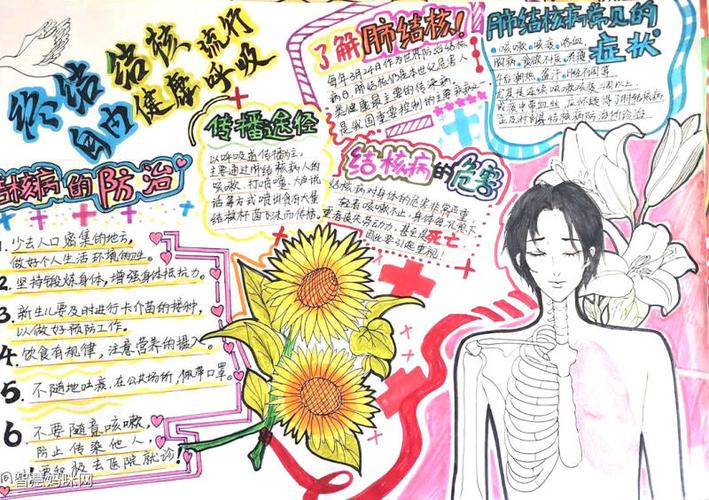 终结结核流行
自由健康呼吸
了解肺结核!
每年3月24日作为世界防治结核
病日肺结核仍是本世纪危害人
类健康最主要的传染病,
是我国重要控制的主要疾病之一
肺结核病常见的
症状
咳嗽、咳痰、咯血,
胸痛、食欲不振、疲倦
午后潮热、盗汗
尤其是连续咳嗽咳痰以上
或痰中带血丝,应怀疑得了肺结核病
要及时到县结核病防治所诊治
传播途径
以呼吸道传播为主,
主要通过肺结核病人的
咳嗽、打喷嚏、大声说
话等方式喷出含有大量
结核杆菌飞沫而传播。
结核病的危害
结核病对身体的危害非常严重
轻者咳嗽不止,身体每况愈下
重者丧失劳动力,甚至是死亡
因此要引起重视!
结核病的防治
1. 少去人口密集的地方,
做好个人生活环境的卫生。
2. 坚持锻炼身体,增强身体抵抗力。
3. 新生儿要及时进行卡介苗的接种,
以做好预防工作。
4. 饮食有规律,注意营养的摄入。
5. 不随地吐痰,在公共场所,佩带口罩。
6. 不要随意咳嗽,
防止传染他人,
去医院就诊!
智慧妈咪网